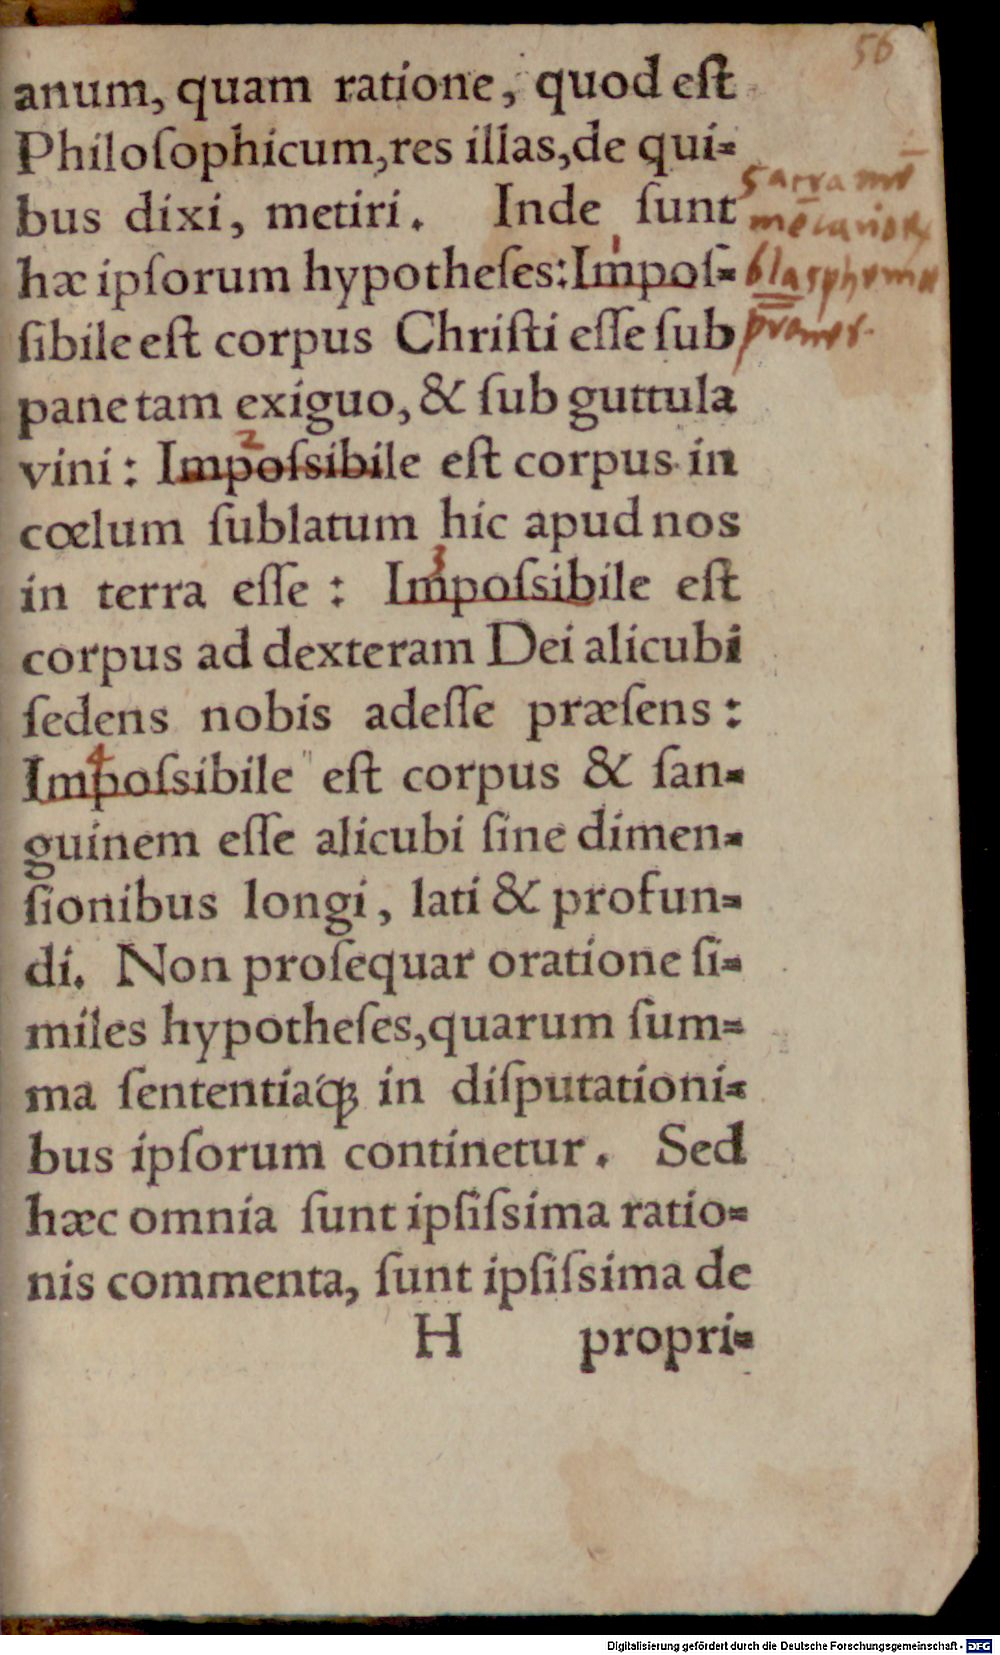 56
anum, quam ratione, quod eſt
Philoſophicum, res illas, de qui⸗
bus dixi, metiri. Inde ſunt
hæ ipſorum hypotheſes: Impoſ⸗
ſibile eſt corpus Chriſti eſſe ſub
pane tam exiguo, & ſub guttula
vini: Impoſsibile eſt corpus in
cœlum ſublatum hic apud nos
in terra eſſe: Impoſsibile eſt
corpus ad dexteram Dei alicubi
ſedens nobis adeſſe præſens:
Impoſsibile eſt corpus & ſan⸗
guinem eſſe alicubi ſine dimen⸗
ſionibus longi, lati & profun⸗
di. Non proſequar oratione ſi⸗
miles hypotheſes, quarum ſum⸗
ma ſententiaꝙ́ in diſputationi⸗
bus ipſorum continetur. Sed
hæc omnia ſunt ipſiſsima ratio⸗
nis commenta, ſunt ipſiſsima de
H propri⸗
1
2
3
4
Digitalisierung gefördert durch die Deutsche Forschungsgemeinschaft - DFG